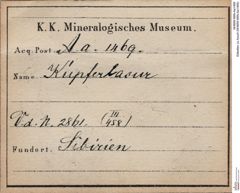 K. K. Mineralogisches Museum.
Acq. Post. Aa. 1469.
Name. Kupferlasur
Ed. N. 2861 (III/458)
Fundort. Sibirien